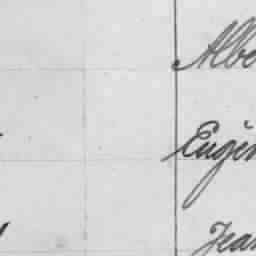 Albe
Eugèn
Jean